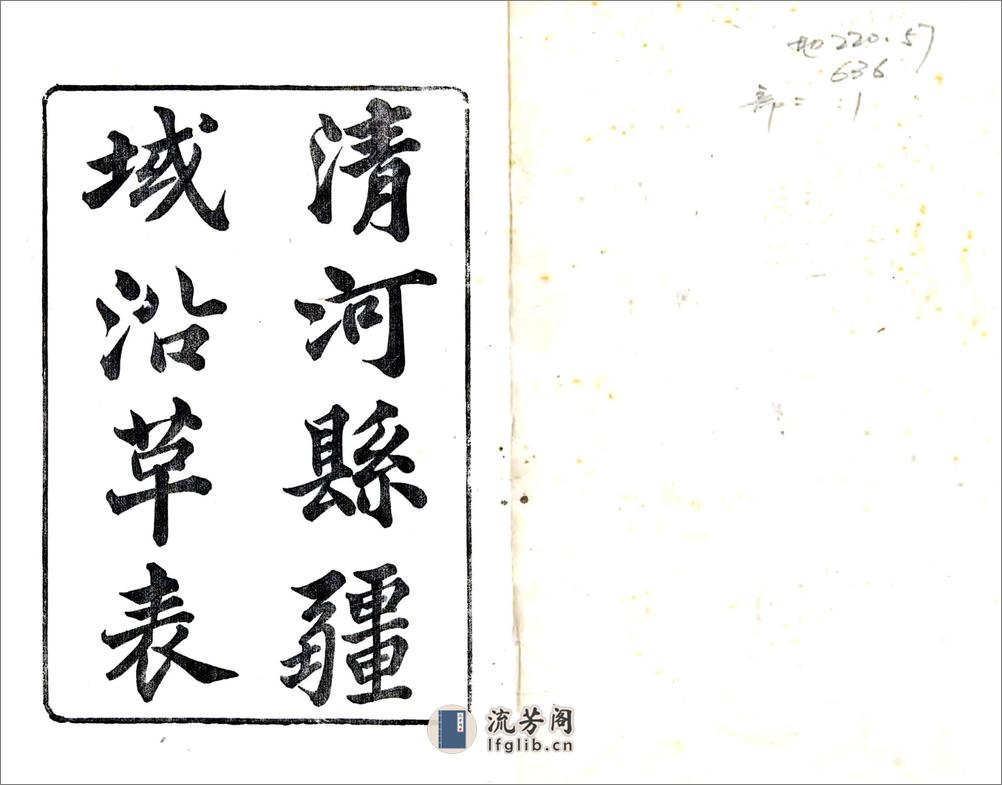 地220.57
636
:1
清河縣疆
域沿革表
流芳阁
lfglib.cn